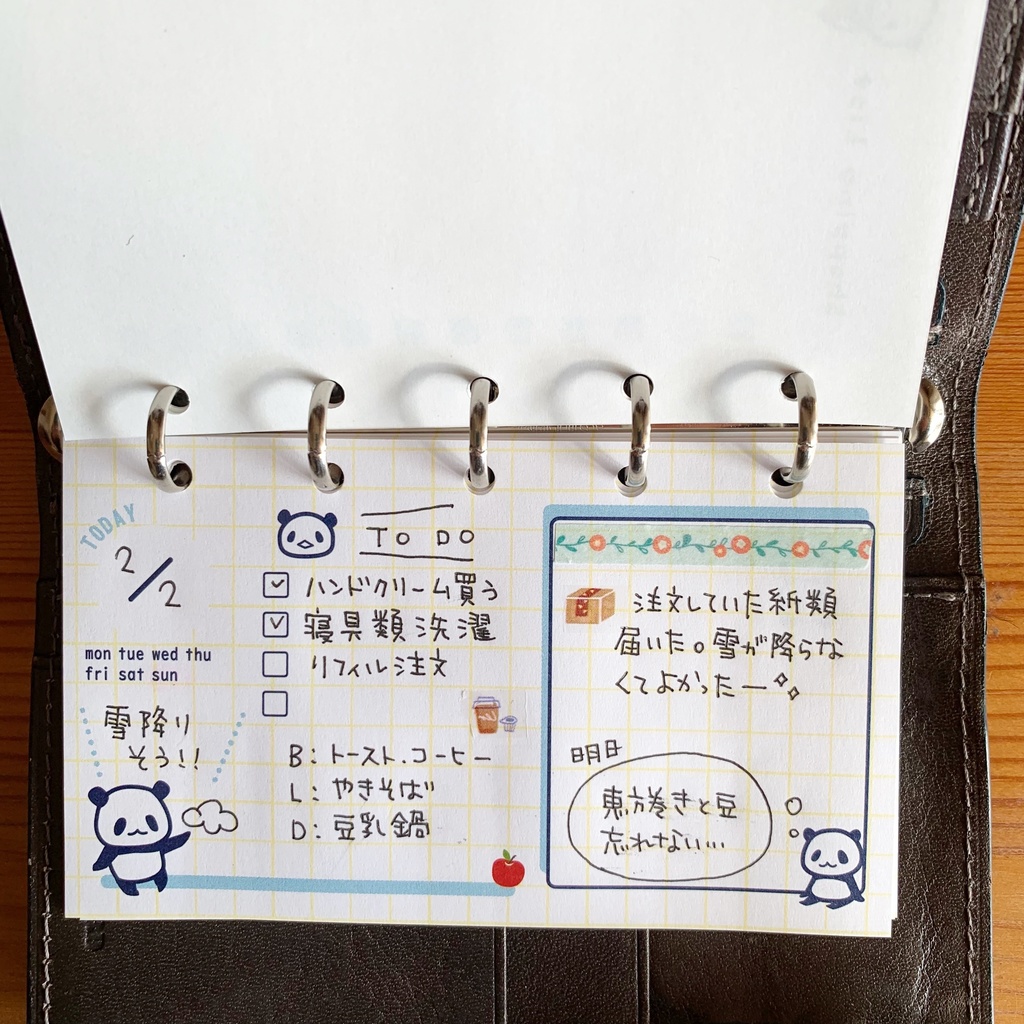 TODAY
2/2
mon tue wed thu
fri sat sun
雪降り
そう!!
TO DO
ハンドクリーム買う
寝具類洗濯
リフィル注文
B:トースト.コーヒー
L:やきそば
D:豆乳鍋
注文していた紙類
届いた。雪が降らな
くてよかったー
明日
恵方巻きと豆
忘れない...